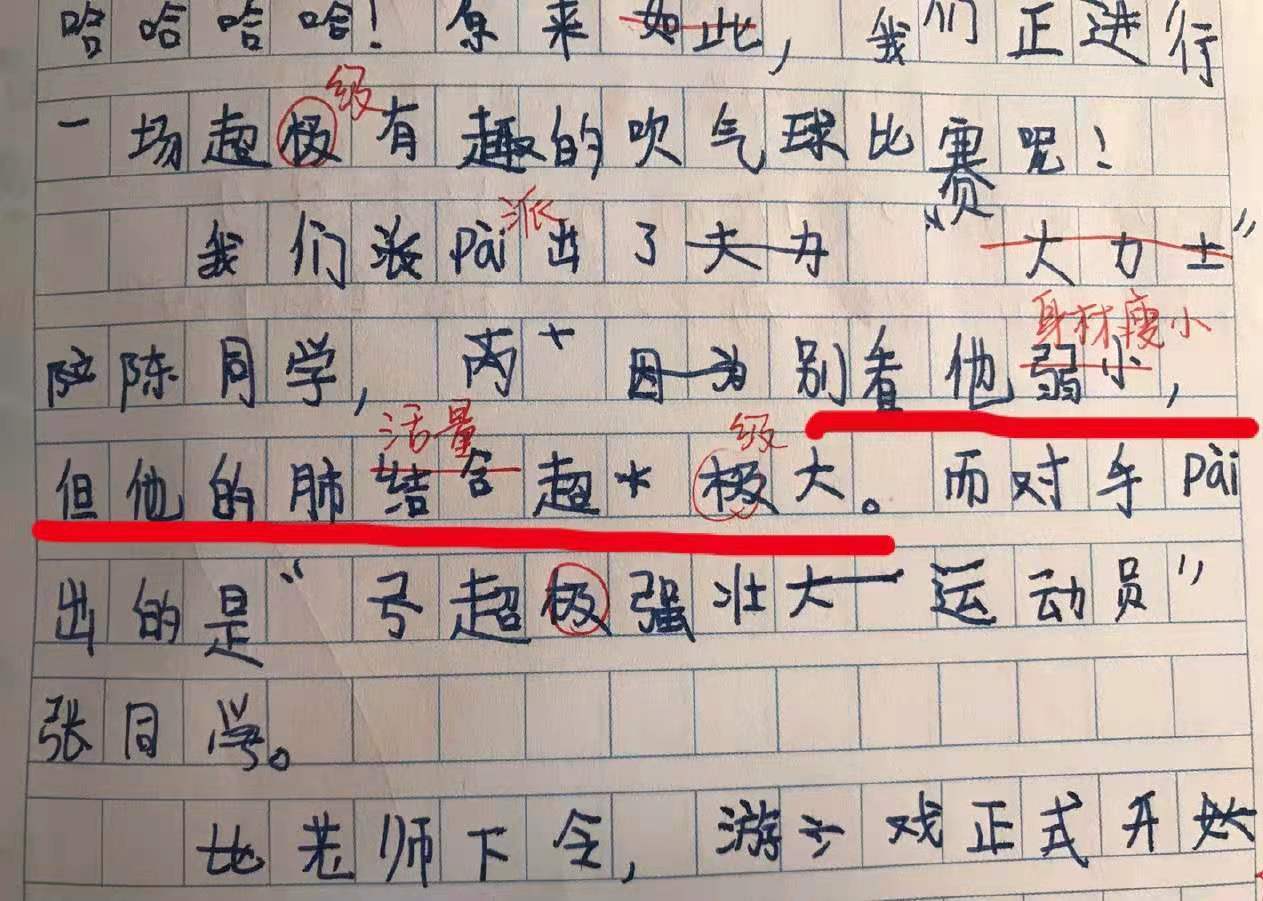 哈哈哈哈！原来如此，我们正进行
级
一场超极有趣的吹气球比赛呢！
派
我们派pài出了大力 “大力士”
身材瘦小
陈同学，两 因为别看他弱小，
活量 级
但他的肺结合超 极大。而对手pài
出的是“ 弓超极强壮大一运动员”
张同学。
比老师下令，游 戏正式开始